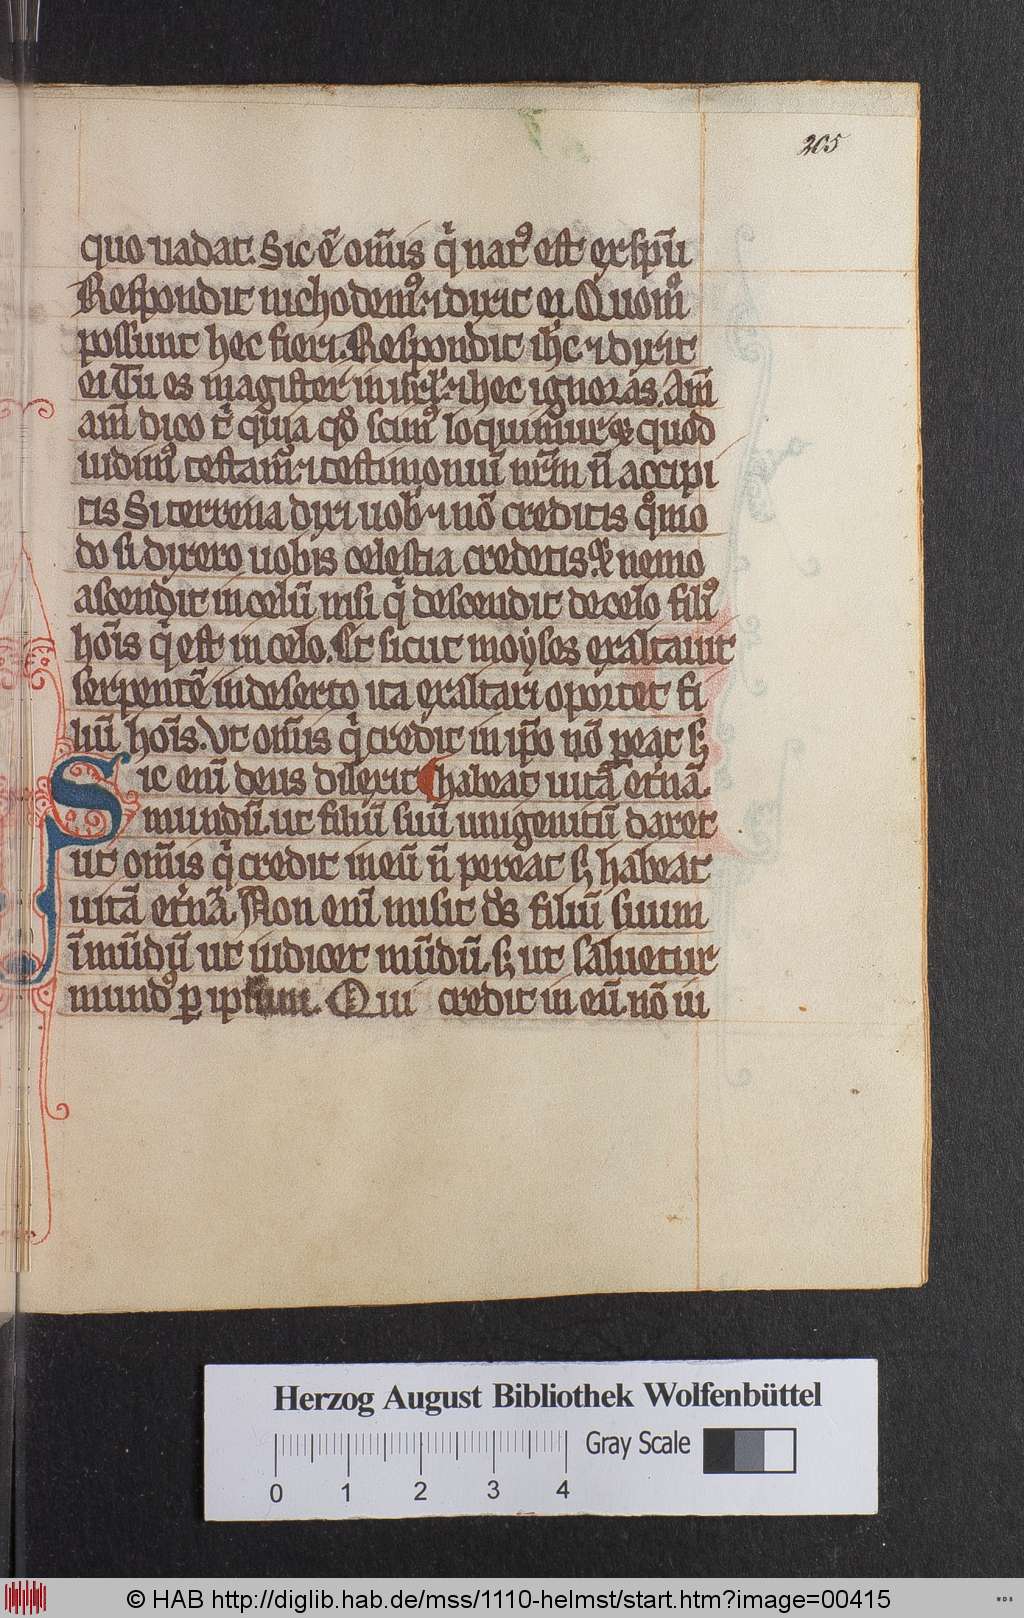 205
quo uadat. Sic ē om̄is q̇ nat᷒ est ex sp̄u
Respondit nichodem᷒ ⁊ dixit ei. Quom̊
possunt hec fieri. Respondit ih̄c ⁊ dixit
ei Tu es magister in isrl̄ ⁊ hec ignoras. Am̄
am̄ dico t̄ quia qd̄ scim᷒ loquimur ⁊ quod
uidim᷒ testam᷒ ⁊ testimoniū nr̄m n̄ accipi
tis Si terrena dixi uob̄ ⁊ nō creditis q̊mo
do si dixero uobis celestia credetis. Et nemo
ascendit in celū nisi q̇ descendit de celo fili᷒
hoīs q̇ est in celo. Et sicut moyses exaltauit
serpentē in deserto ita exaltari oportet fi
liū hoīs. Ut om̄is q̇ credit in ip̄o nō ꝑeat ꝫ
Sic eni deus dilexit habeat uitā et̄nā.
mundū. ut filiū suū unigenitū daret
ut om̄is q̇ credit in eū n̄ pereat ꝫ habeat
uitā et̄nā. Non enī misit ds̄ filiū suum
ī mūdū ut iudicet mūdū. ꝫ ut saluetur
mund᷒ ꝑ ipsum. Qui credit in eū. nō iu
Herzog August Bibliothek Wolfenbüttel
0 1 2 3 4 Gray Scale
© HAB http://diglib.hab.de/mss/1110-helmst/start.htm?image=00415